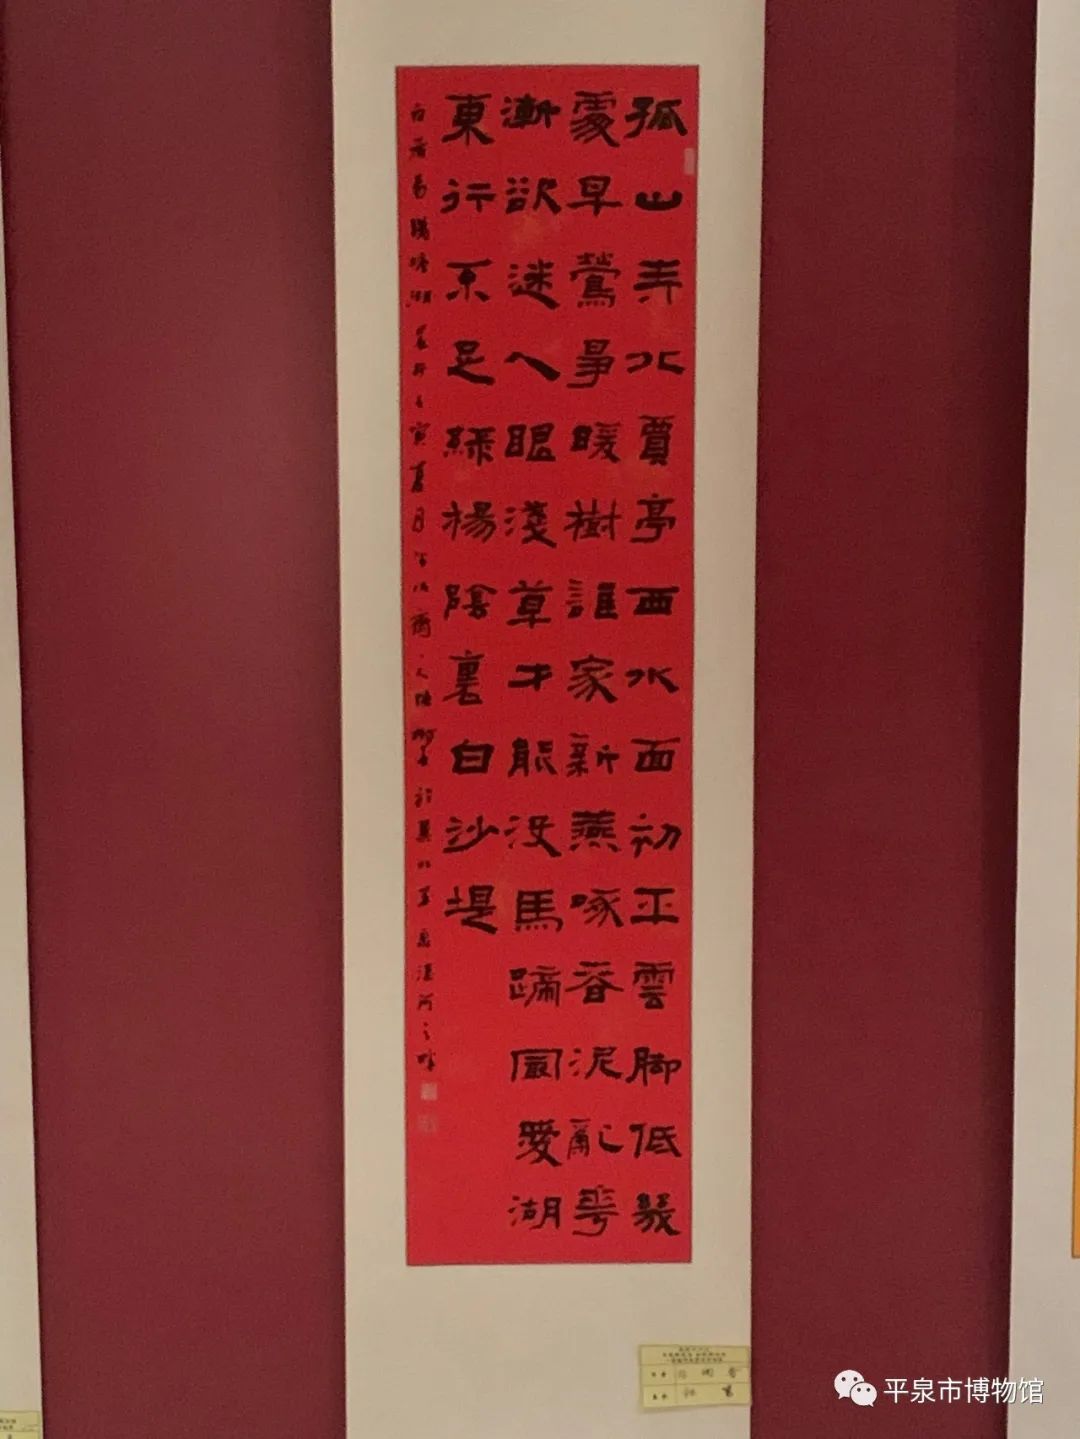 孤山寺北賈亭西水面初平雲脚低幾
處早鶯爭暖樹誰家新燕啄春泥亂華
漸欲迷人眼淺草才能没馬蹄最愛湖
東行不足綠楊陰裏白沙堤
白居易錢塘湖春行壬寅夏月
平泉市博物馆